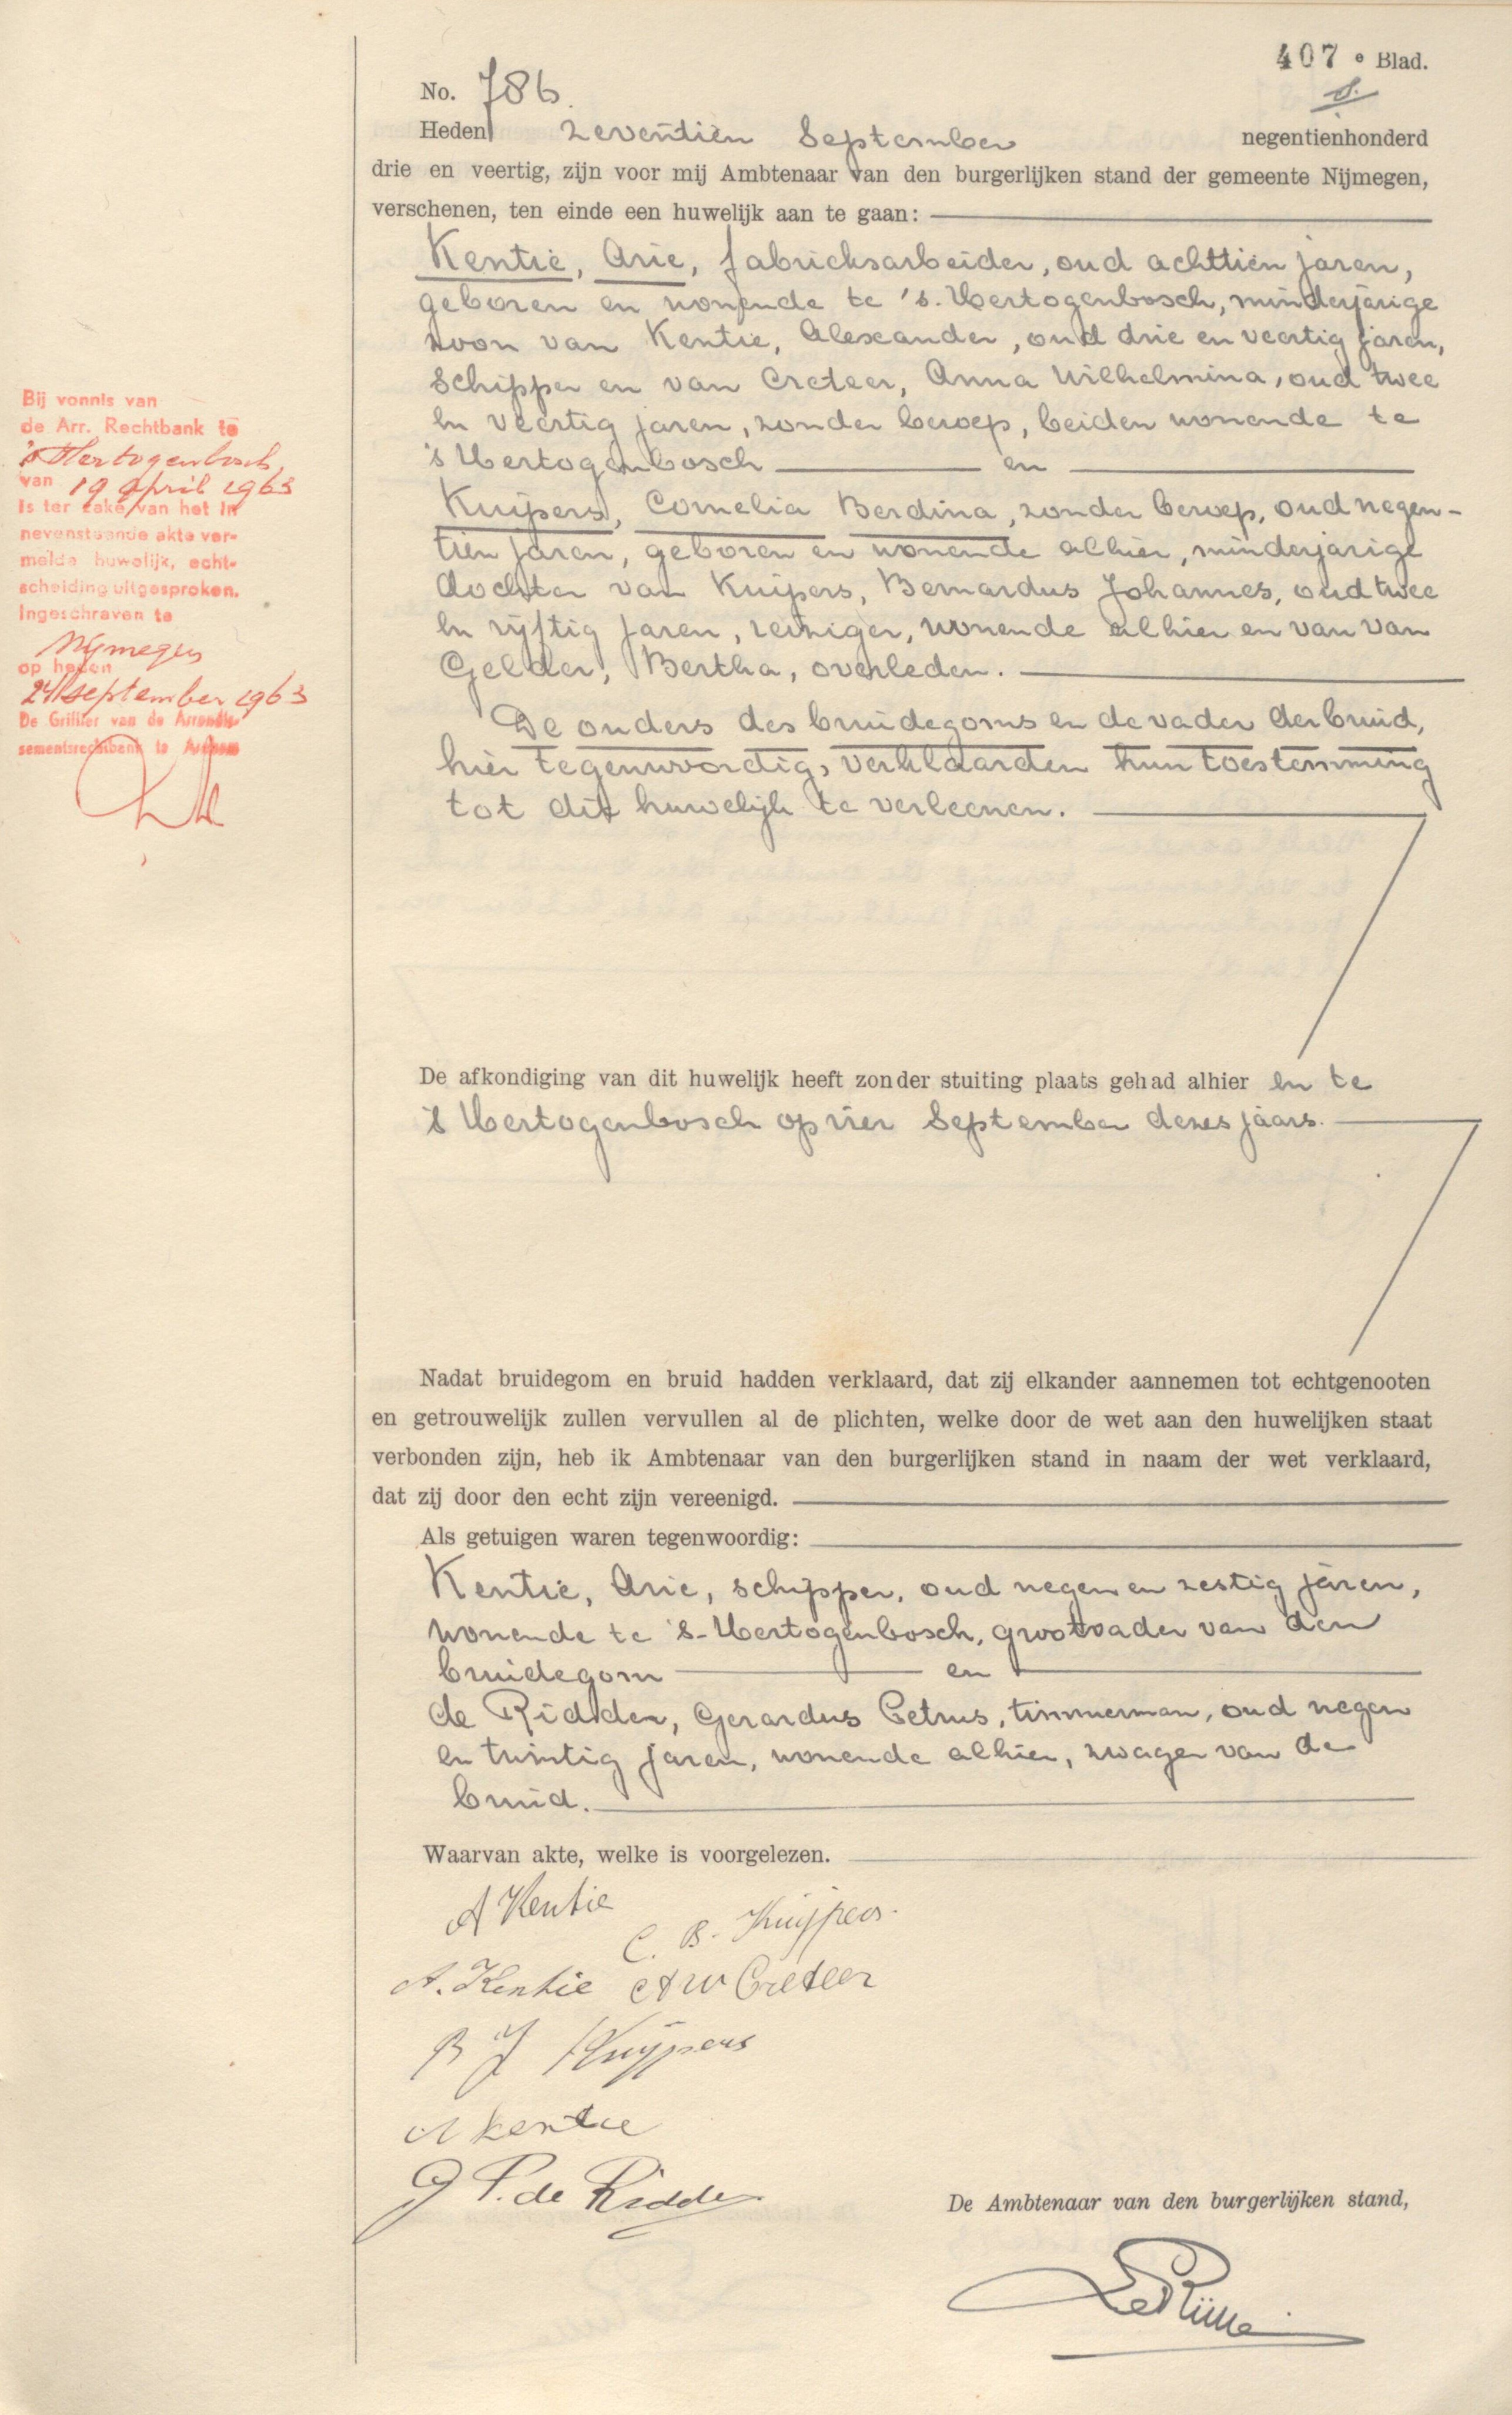 407 e Blad.
No. 786.
Heden zeventien September negentienhonderd
drie en veertig, zijn voor mij Ambtenaar van den burgerlijken stand der gemeente Nijmegen,
verschenen, ten einde een huwelijk aan te gaan:
Kentie, Arie, fabrieksarbeider, oud achttien jaren,
geboren en wonende te 's-Hertogenbosch, minderjarige
zoon van Kentie, Alexander, oud drie en veertig jaren,
schipper en van Creteer, Anna Wilhelmina, oud twee
en veertig jaren, zonder beroep, beiden wonende te
's Hertogenbosch en
Kuijpers, Cornelia Berdina, zonder beroep, oud negen-
tien jaren, geboren en wonende alhier, minderjarige
dochter van Kuijpers, Bernardus Johannes, oud twee
en vijftig jaren, reiniger, wonende alhier en van van
Gelder, Bertha, overleden.
De ouders des bruidegoms en de vader der bruid,
hier tegenwoordig, verklaarden hun toestemming
tot dit huwelijk te verleenen.
Bij vonnis van
de Arr. Rechtbank te
's Hertogenbosch,
van 19 april 1963
is ter zake van het in
nevenstaande akte ver-
melde huwelijk, echt-
scheiding uitgesproken.
Ingeschreven te
Nijmegen
op heden
24 september 1963
De Griffier van de Arrondis-
sementsrechtbank te Arnhem
De afkondiging van dit huwelijk heeft zonder stuiting plaats gehad alhier en te
's Hertogenbosch op vier September dezes jaars.
Nadat bruidegom en bruid hadden verklaard, dat zij elkander aannemen tot echtgenooten
en getrouwelijk zullen vervullen al de plichten, welke door de wet aan den huwelijken staat
verbonden zijn, heb ik Ambtenaar van den burgerlijken stand in naam der wet verklaard,
dat zij door den echt zijn vereenigd.
Als getuigen waren tegenwoordig:
Kentie, Arie, schipper, oud negen en zestig jaren,
wonende te 's-Hertogenbosch, grootvader van den
bruidegom en
de Ridder, Gerardus Petrus, timmerman, oud negen
en twintig jaren, wonende alhier, zwager van de
bruid.
Waarvan akte, welke is voorgelezen.
A Kentie
C. B. Kuijpers.
A. Kentie AW Creteer
B J Kuijpers
A Kentie
G P. de Ridder
De Ambtenaar van den burgerlijken stand,